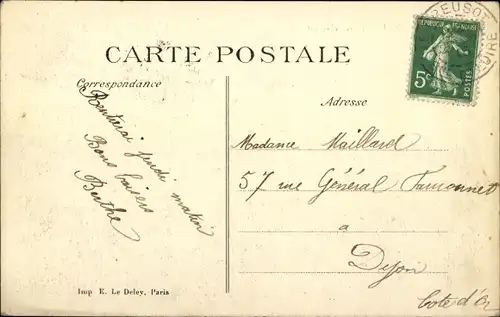 CARTE POSTALE
Correspondance
Rentrerai jeudi matin
Bons baisers
Berthe
Adresse
Madame Maillard
57 rue Général Fauconnet
a
Dijon
Cote d'Or
REPUBLIQUE FRANÇAISE
5c
POSTES
Imp E. Le Deley, Paris